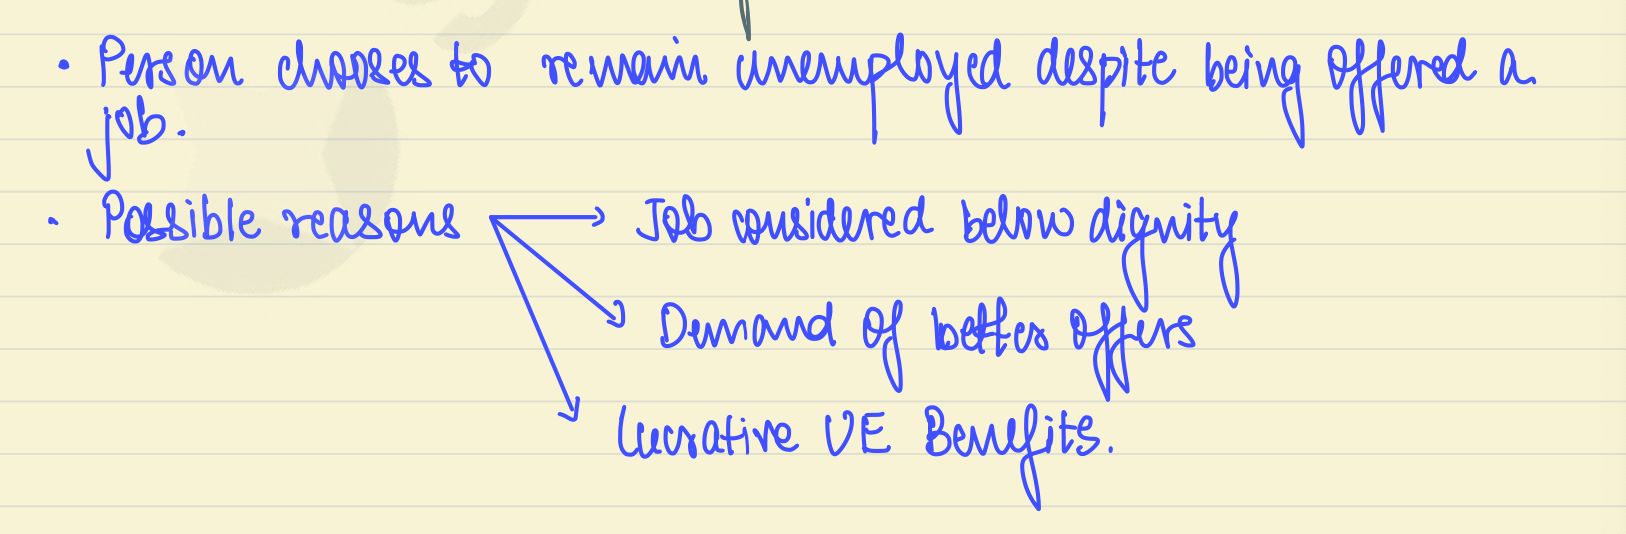 • Person chooses to remain unemployed despite being offered a
job.
• Possible reasons → Job considered below dignity
→ Demand of better offers
→ Lucrative UE Benefits.